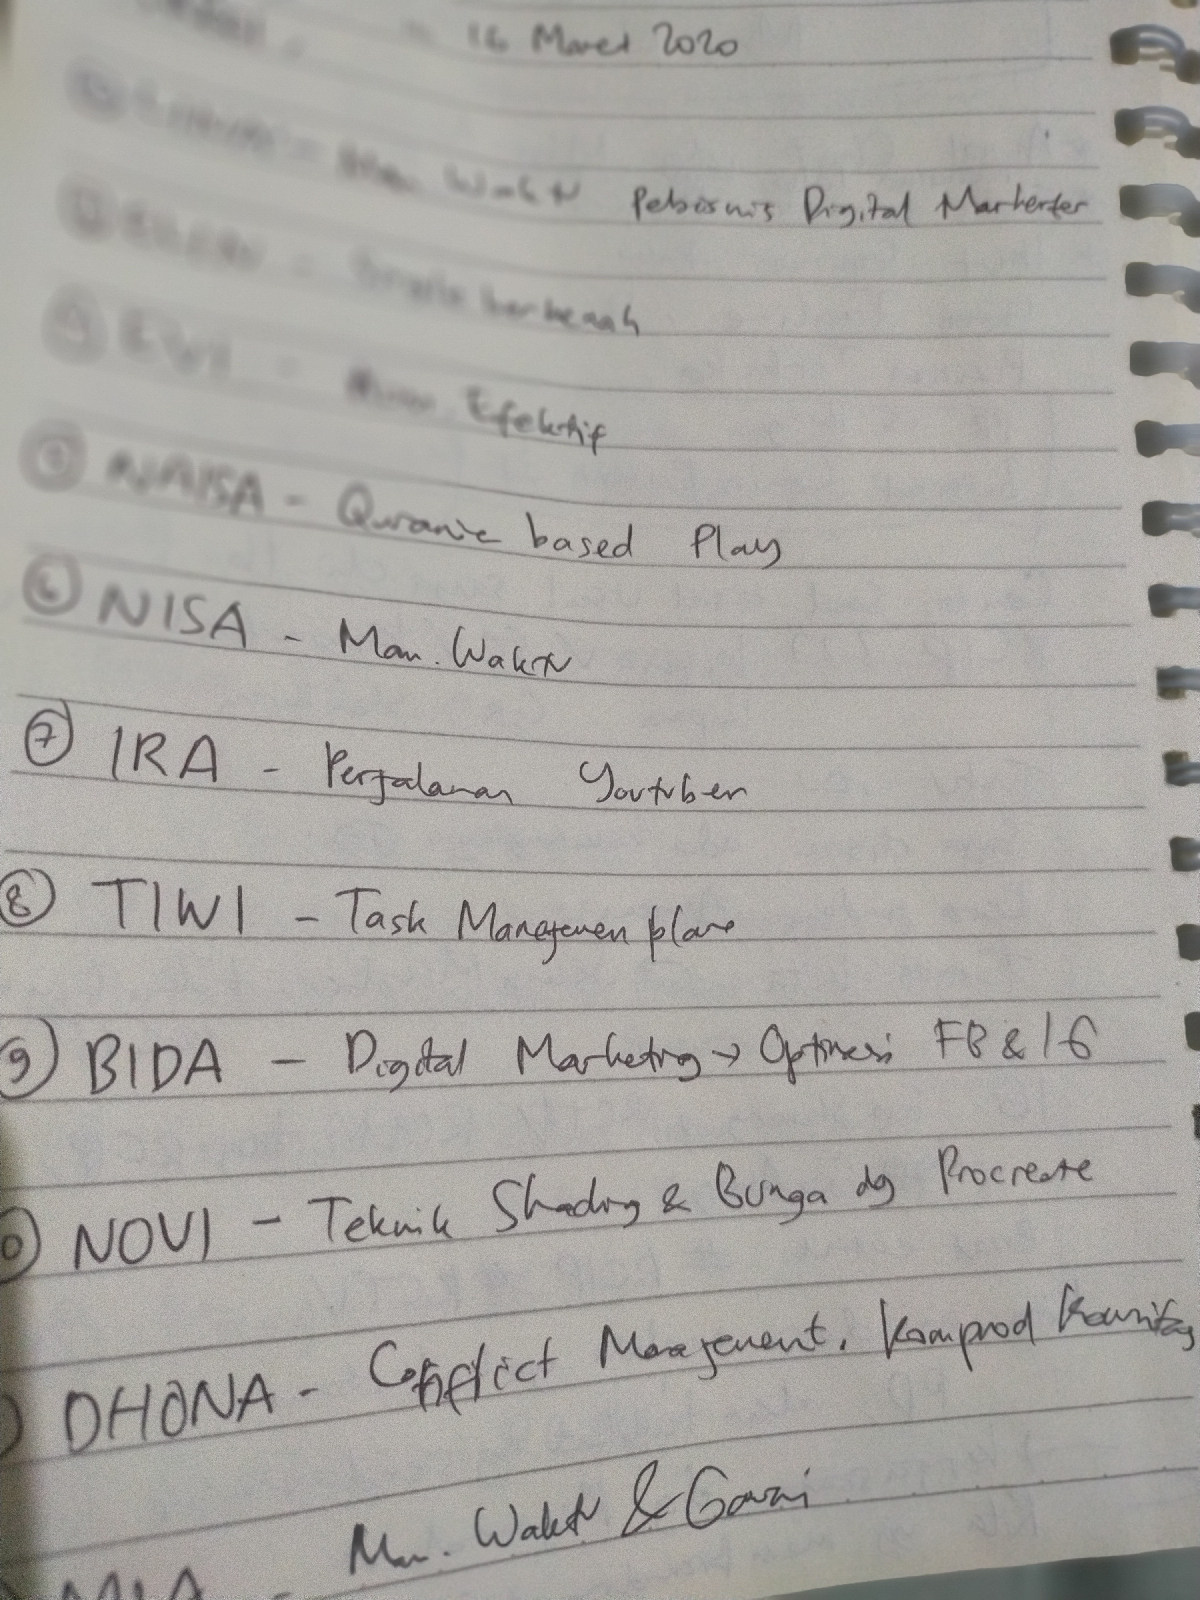 16 Maret 2020
Man. Waktu Pebisnis Digital Marketer
berkenah
④ EWI - Efektif
⑤ NAISA - Quranic based Play
⑥ NISA - Man. Waktu
⑦ IRA - Perjalanan Youtuber
⑧ TIWI - Task Manajemen plans
9 BIDA - Digital Marketing → Optimasi FB & IG
0 NOVI - Teknik Shading & Bunga dg Procreate
DHONA - Conflict Management. Komprod Komitas
MIA - Man. Waktu &